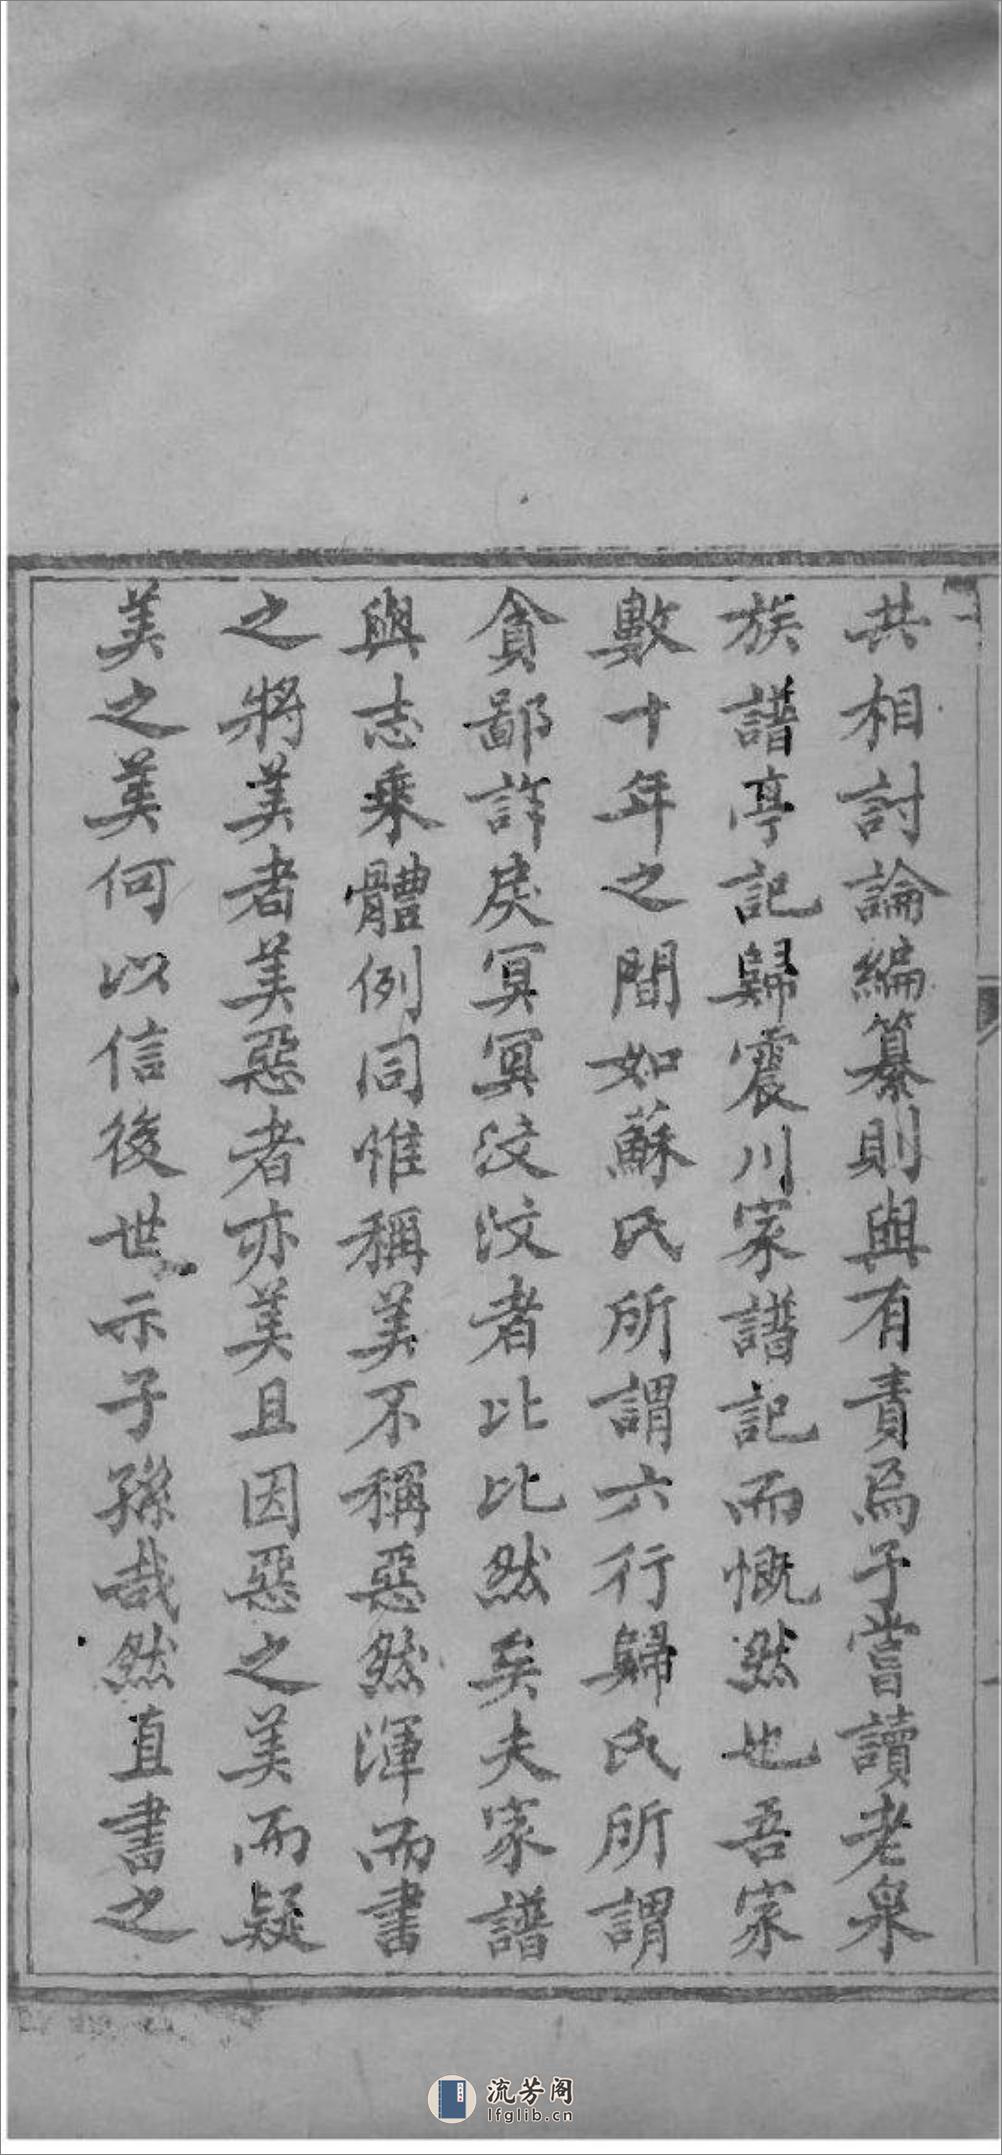 共相討論編纂則與有責焉予嘗讀老泉
族譜亭記歸震川家譜記而慨然也吾家
數十年之間如蘇氏所謂六行歸氏所謂
貪鄙詐戾冥冥汶汶者比比然矣夫家譜
與志乘體例同惟稱美不稱惡然渾而書
之將美者美惡者亦美且因惡之美而疑
美之美何以信後世示子孫哉然直書之
流芳阁
lfglib.cn